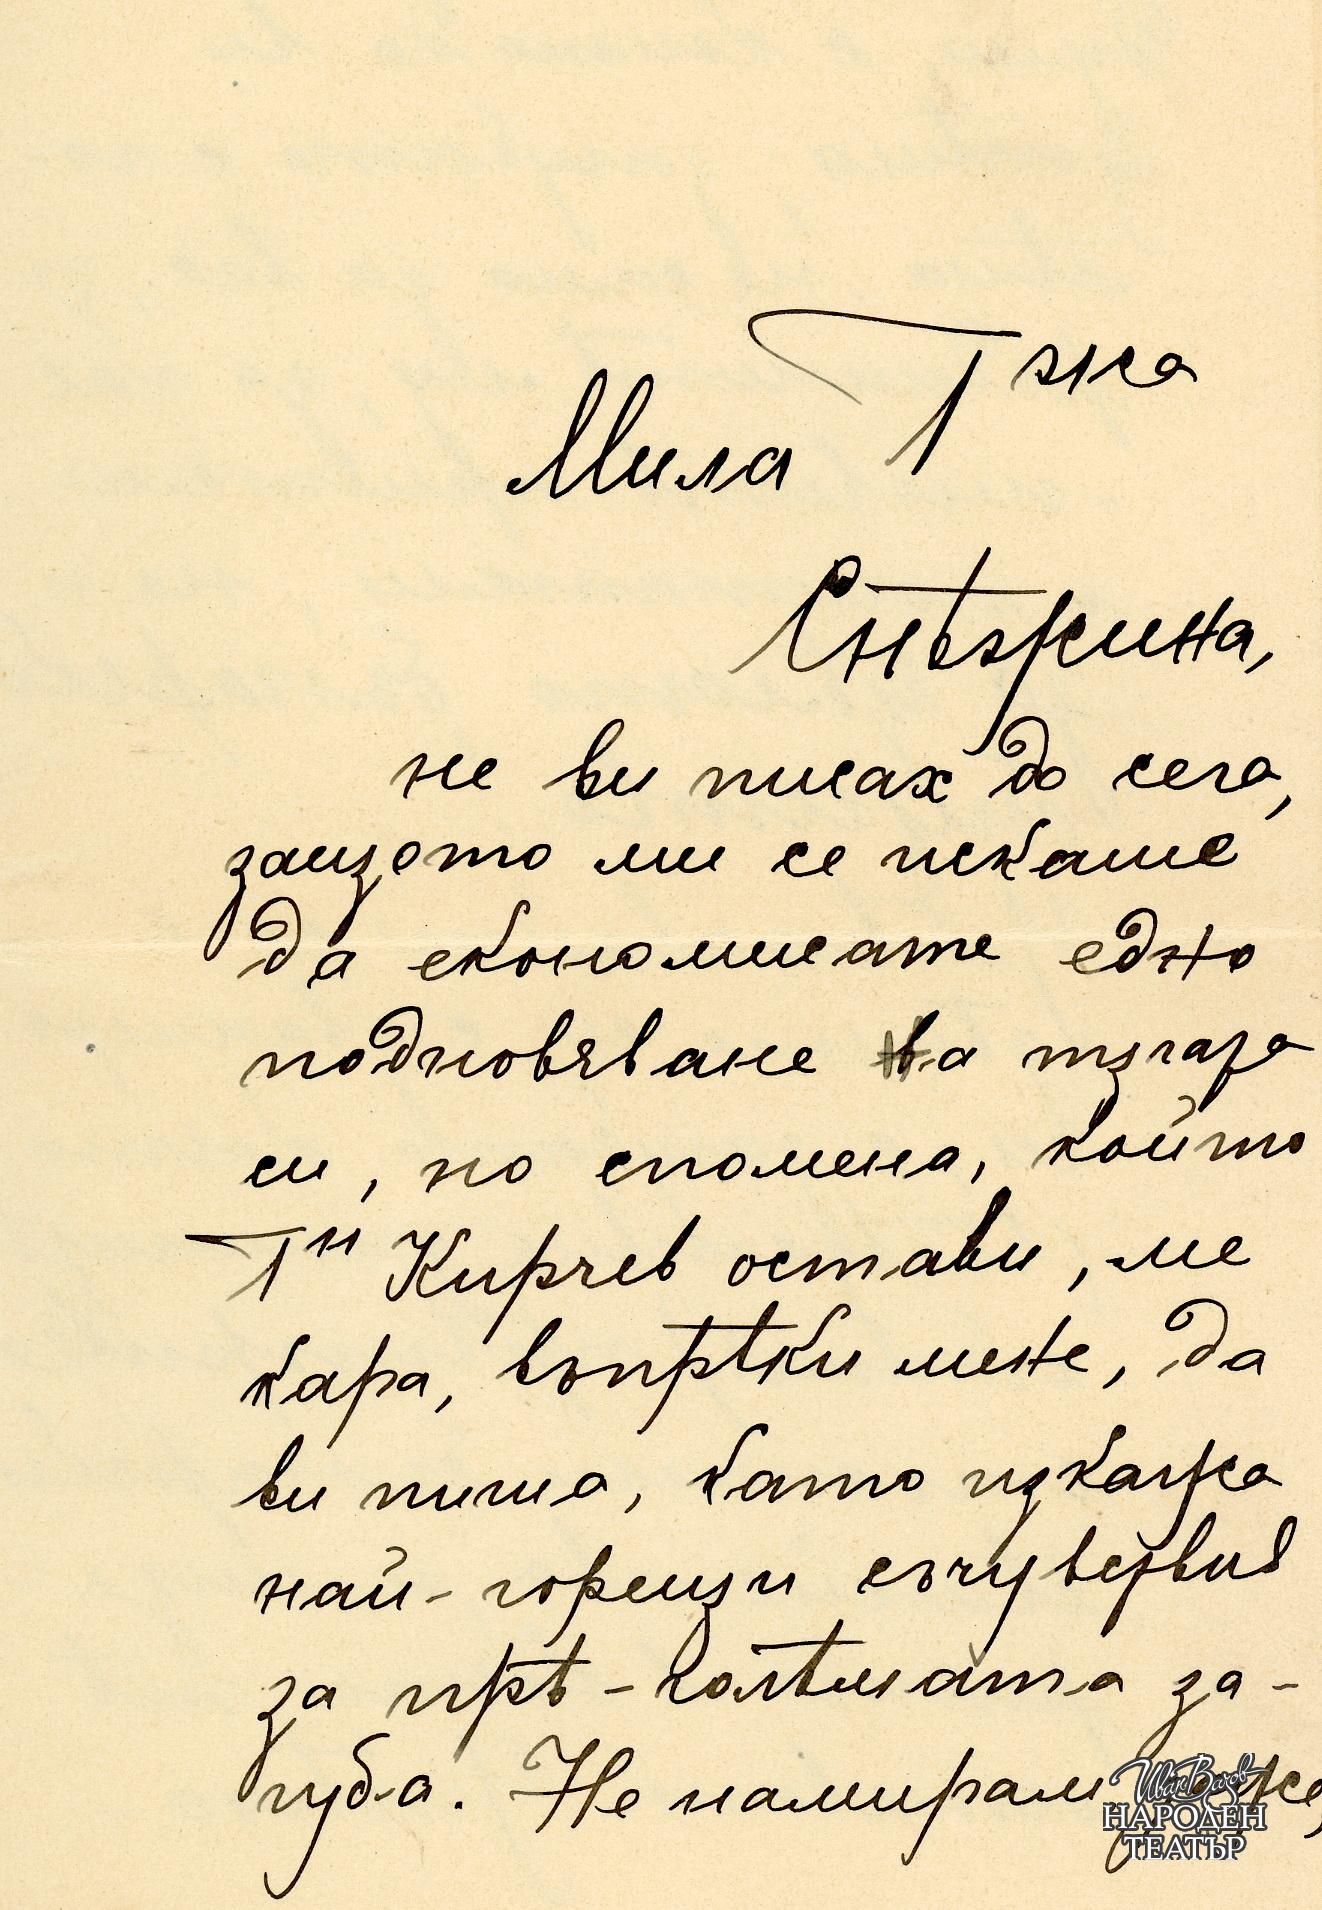 Мила Г-жа
Снѣжина,
не ви писах до сега,
защото ми се искаше
да економисате едно
подновяване на тъгата
си, но спомена, който
Гн Кирчев остави, ме
кара, въпрѣки мене, да
ви пиша, като изкажа
най-горещи съчувствия
за прѣ-голѣмата за-
губа. Не намирам
Иван Вазов
НАРОДЕН
ТЕАТЪР